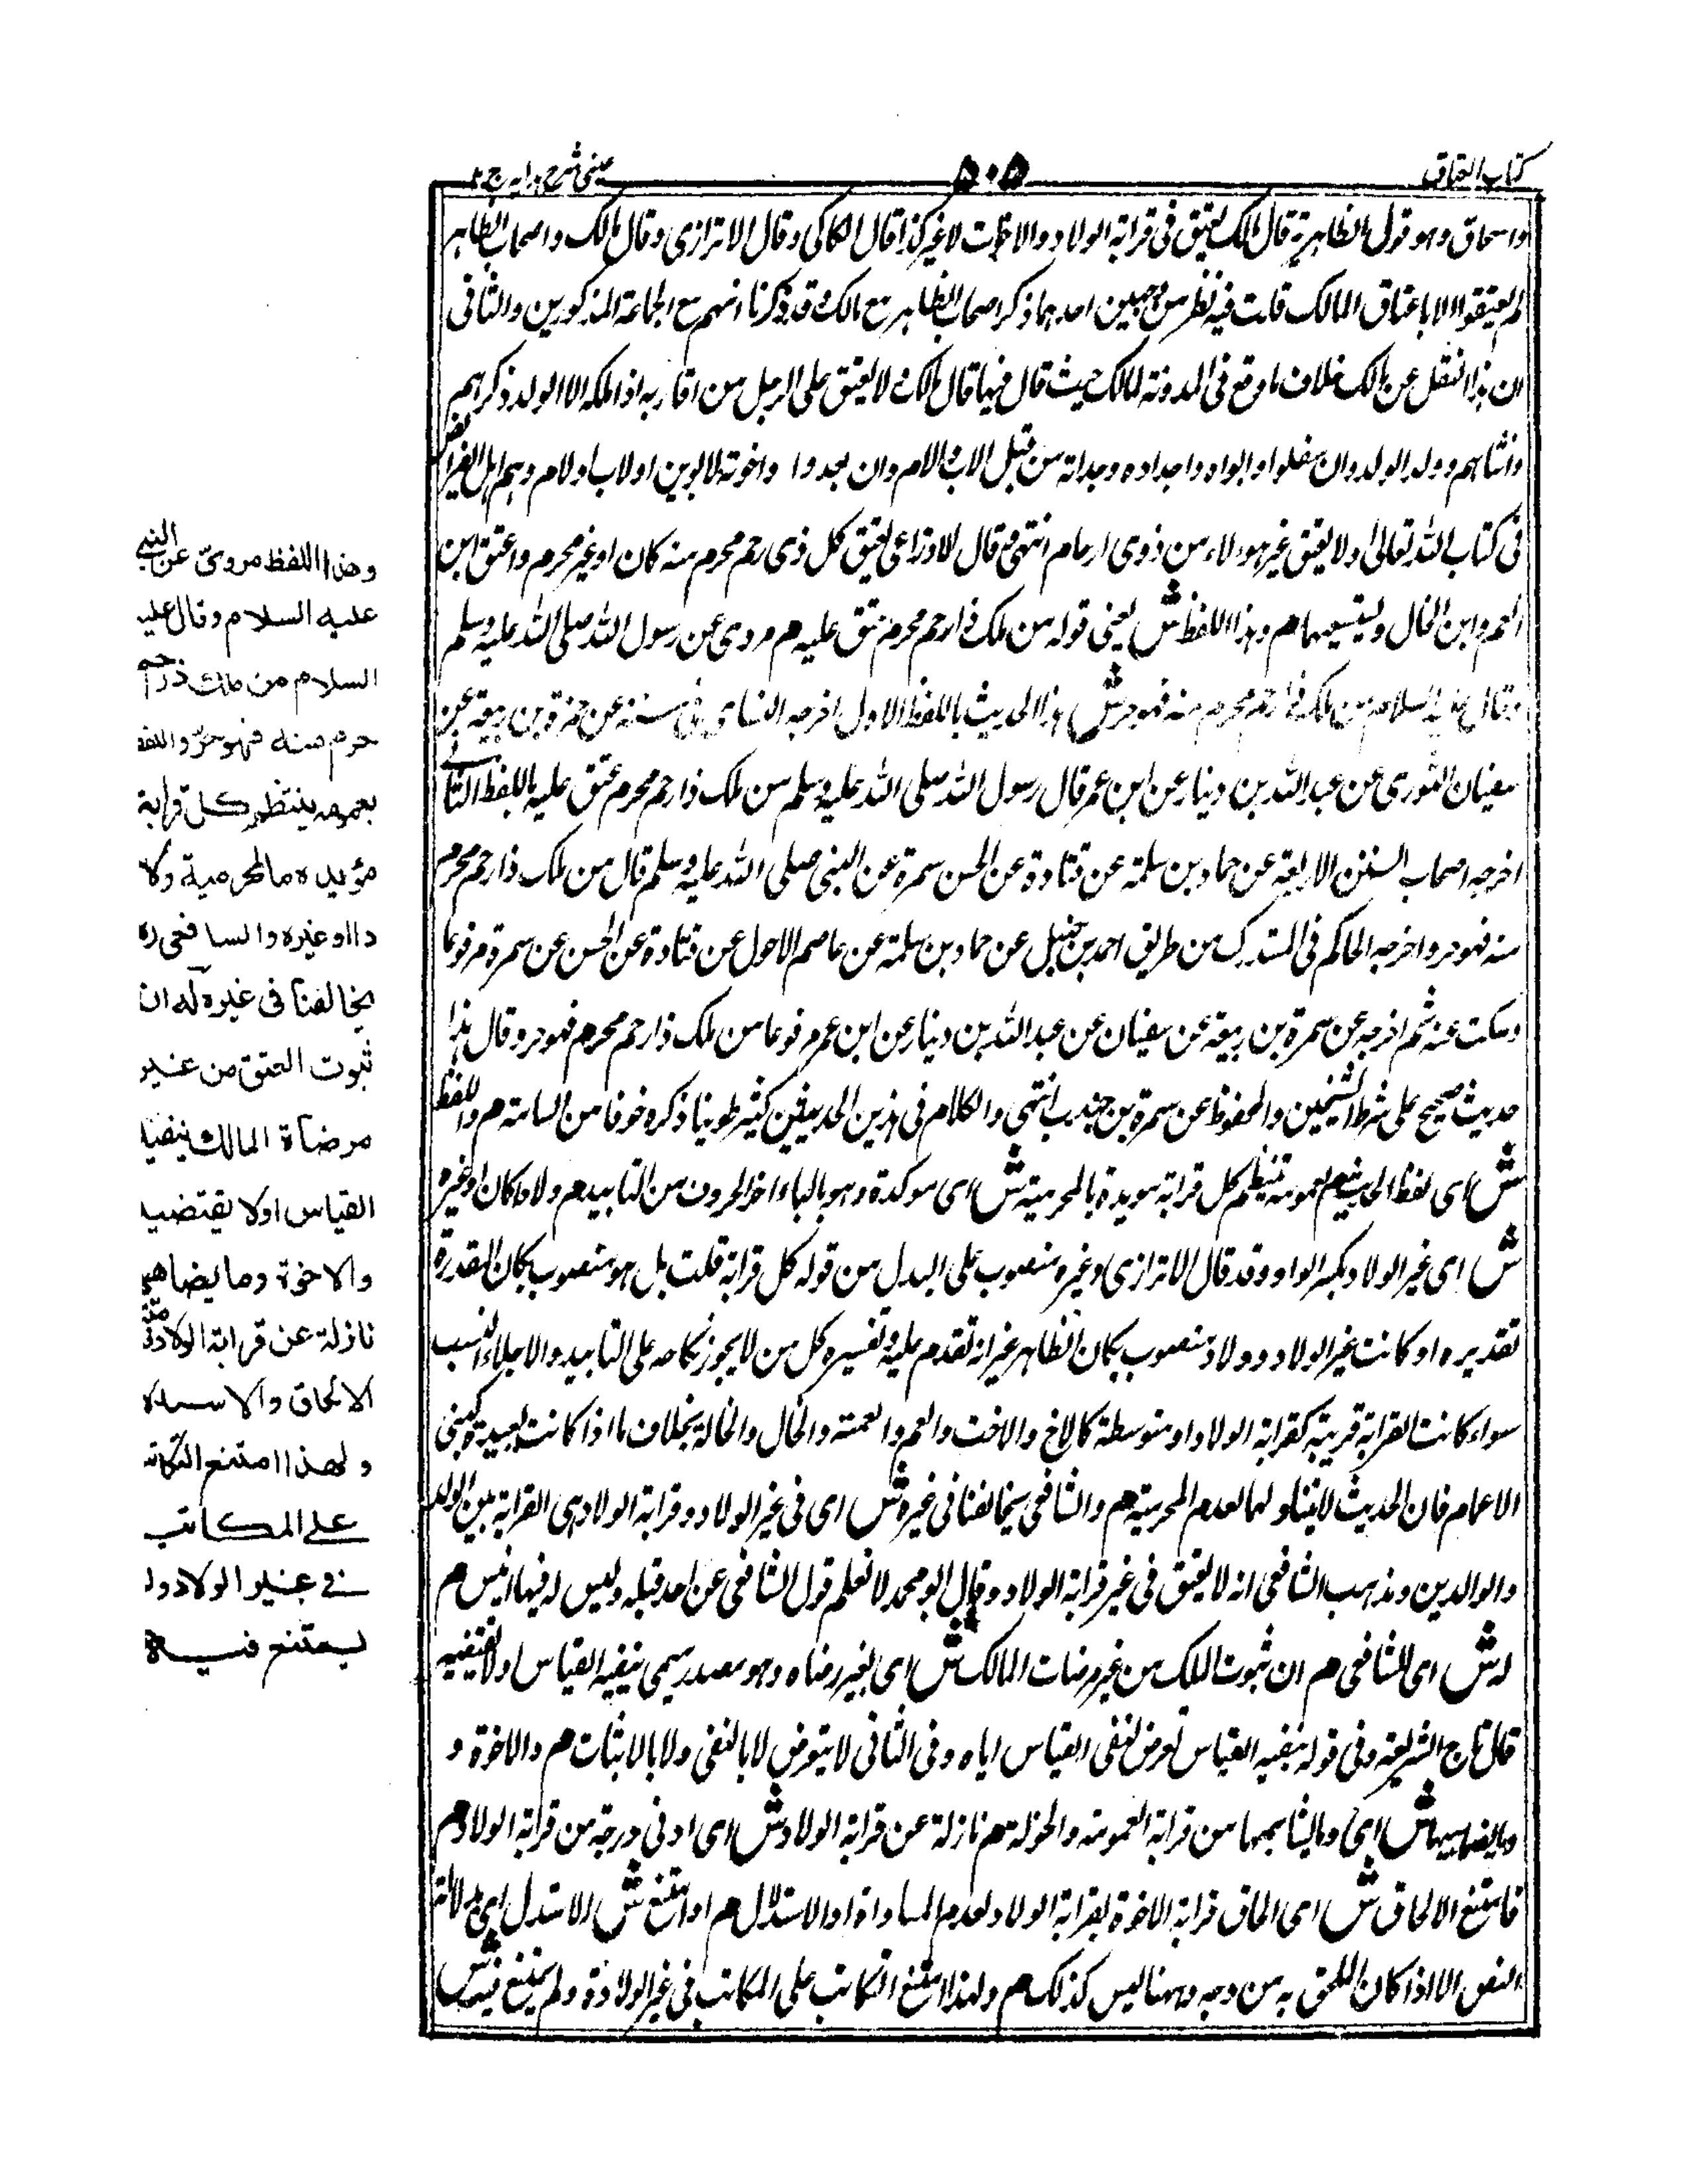 كتاب العتاق
٥٠٥
عينى شرح هدايه ج ٢
واسحاق وهو قول الظاهرية قال مالك يعتق فى قرابة الولاد والاخوات لا غير كذا قال الكاكى وقال الاترازى وقال مالك واصحاب الظاهر
لم يعتقوا الا باعتاق المالك قلت فيه نظر من وجهين احدهما ذكر اصحاب الظاهر مع مالك وقد ذكرنا انهم مع الجماعة المذكورين والثانى
ان هذا النقل عن مالك خلاف ما وقع فى المدونة لمالك حيث قال فيها قال مالك لا يعتق على الرجل من اقاربه اذا ملكه الا الولد ذكرانهم
واناثهم وولد الولد وان سفلوا وابواه واجداده وجداته من قبل الاب والام وان بعدوا واخوته لابوين او لاب او لام وهم اهل الفرائض
فى كتاب الله تعالى ولا يعتق غير هولاء من ذوى ارحام انتهى م قال الاوزاعى يعتق كل ذى رحم محرم منه كان او غير محرم واعتق ابن
العم وابن الخال ويستسعيهما م وهذا اللفظ ش يعنى قوله من ملك ذا رحم محرم عتق عليه م مروى عن رسول الله صلى الله عليه وسلم
وقال عليه السلام من ملك ذا رحم محرم منه فهو حر ش هذا الحديث باللفظ الاول اخرجه النسائى فى سننه عن حمزة بن ربيعة عن
سفيان الثورى عن عبد الله بن دينار عن ابن عمر قال رسول الله صلى الله عليه وسلم من ملك ذا رحم محرم عتق عليه باللفظ الثانى
اخرجه اصحاب السنن الاربعة عن حماد بن سلمة عن قتادة عن الحسن سمرة عن النبى صلى الله عليه وسلم قال من ملك ذا رحم محرم
منه فهو حر واخرجه الحاكم فى المستدرك من طريق احمد بن حنبل عن حماد بن سلمة عن عاصم الاحول عن قتادة عن الحسن عن سمرة مرفوعا
وسكت عنه ثم اخرجه عن سمرة بن ربيعة عن سفيان عن عبد الله بن دينار عن ابن عمر مرفوعا من ملك ذا رحم محرم فهو حر وقال هذا
حديث صحيح على شرط الشيخين والمحفوظ عن سمرة بن جندب انتهى والكلام فى هذين الحديثين كثير طوينا ذكره خوفا من السامة م واللفظ
ش اى لفظ الحديث م بعمومه ينتظم كل قرابة مويدة بالمحرمية ش اى موكدة وهو بالياء اخر الحروف من التاييد م ولادا كان او غيره
ش اى غير الولاد بكسر الواو وقد قال الاترازى وغيره منصوب على البدل من قوله كل قرابة قلت بل هو منصوب بكان المقدرة
تقديره او كانت غير الولاد وولاد منصوب بكان الظاهر غير انه تقدم عليه وتفسيره كل من لا يجوز نكاحه على التابيد والاجلاء النسب
سواء كانت القرابة قريبة كقرابة الولاد او متوسطة كالاخ والاخت والعم والعمة والخال والخالة بخلاف ما اذا كانت بعيدة كبنى
الاعمام فان الحديث لا يتناولها لعدم المحرمية م والشافعى يخالفنا فى غيره ش اى فى غير الولاد وقرابة الولاد هى القرابة بين الولد
والوالدين ومذهب الشافعى انه لا يعتق فى غير قرابة الولاد وقال ابو محمد لا نعلم قول الشافعى عن احد قبله وليس له فيها انيس م
له ش اى للشافعى م ان ثبوت الملك من غير مرضات المالك ش اى بغير رضاه وهو مصدر ميمى ينفيه القياس او لا يقتضيه
قال تاج الشريعة وفى قوله ينفيه القياس تعرض لنفى القياس اياه وفى الثانى لا يتعرض لا بالنفى ولا بالاثبات م والاخوة و
ما يضاهيها ش اى وما يشابهها من قرابة العمومة والخولة م نازلة عن قرابة الولاد ش اى ادنى درجة من قرابة الولاد م
فامتنع الالحاق ش اى الحاق قرابة الاخوة بقرابة الولاد لعدم المساواة او الاستدلال م او امتنع ش الاستدل اى بدلالة
النص الا اذا كان الملحق به من وجه وههنا ليس كذلك م ولهذا امتنع التكاتب على المكاتب فى غير الولادة ولم يمتنع فيه ش
وهذا اللفظ مروىّ عن النبى
عليه السلام وقال عليه
السلام من ملك ذا رحم
حرم منه فهو حرّ واللفظ
بعمومه ينتظم كل قرابة
مؤيده مالمحرمية ولا
دااو غيره والشافعى ره
يخالفنا فى غيره له ان
ثبوت العتق من غير
مرضاة المالك ينفيه
القياس اولا يقتضيه
والاخوة وما يضاهيها
نازلة عن قرابة الولاد فامتنع
الالحاق والاستدلال
ولهذا امتنع التكاتب
على المكاتب
فى غير الولاد ولم
يمتنع فيه